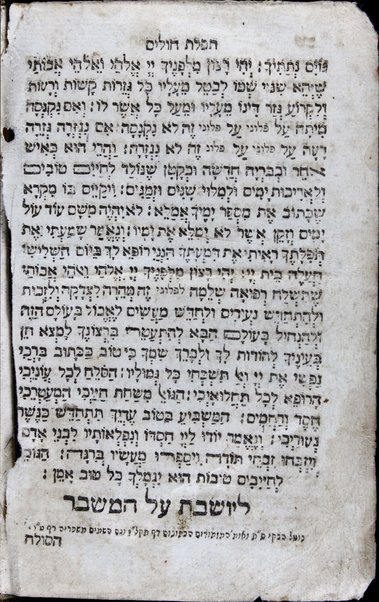 תפלת חולים
גוים נתתיך: יהי רצון מלפניך יי אלהי ואלהי אבותי
שיהא שנוי שמו לבטל מעליו כל גזרות קשות ורעות
ולקרוע גזר דינו מעליו ומעל כל אשר לו: ואם נקנסה
מיתה על פלוני על פלוני זה לא נקנסה: אם נגזרה גזרה
רעה על פלוני על פלוני זה לא נגזרה: והרי הוא כאיש
אחר וכבריה חדשה וכקטן שנולד לחיים טובים
ולאריכות ימים ולמלוי שנים וזמנים: ויקיים בו מקרא
שכתוב את מספר ימיך אמלא: לא יהיה משם עוד עול
ימים וזקן אשר לא ימלא את ימיו: ונאמר שמעתי את
תפלתך ראיתי את דמעתך הנני רופא לך ביום השלישי
תעלה בית יי: יהי רצון מלפניך יי אלהי ואלהי אבותי
שתשלח רפואה שלמה לפלוני זה מהרה לצדקה ולזכות
ולהתחדש נעורים ולחדש מעשים לאכול בעולם הזה
ולהנחול בעולם הבא להתעטר ברצונך למצא חן
בעיניך להודות לך ולברך שמך כי טוב ככתוב ברכי
נפשי את יי ואל תשכחי כל גמוליו: הסולח לכל עוניכי
הרופא לכל תחלואיכי: הגואל משחת חייכי המעטרכי
חסד ורחמים: המשביע בטוב עדיך תתחדש כנשר
נעוריכי: ונאמר יודו ליי חסדו ונפלאותיו לבני אדם
ויזבחו זבחי תודה ויספרו מעשיו ברנה: הגומל
לחייבים טובות הוא יגמלך כל טוב אמן:
ליושבת על המשבר
הסולח